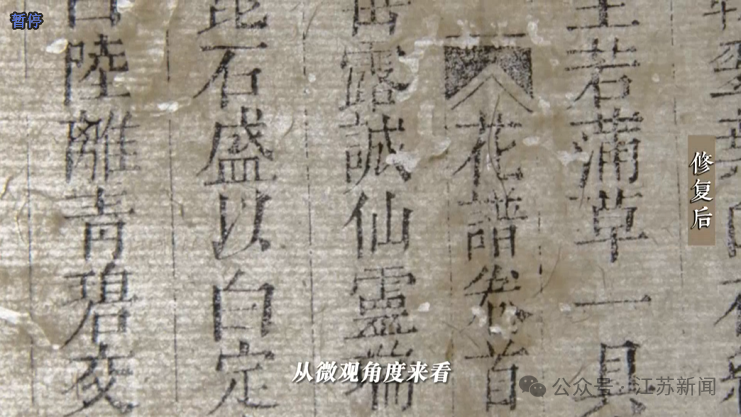 暂停
若蒲草一具
花譜卷首
露誠仙靈端
石盛以白定
陸離青碧夜
修复后
从微观角度来看
公众号·江苏新闻